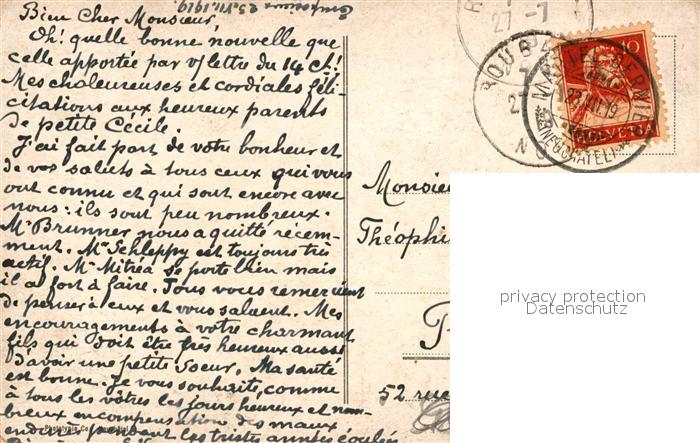 25.VII.1919.
Bien Cher Monsieur,
Oh! quelle bonne nouvelle que
celle apportée par v/ lettre du 14 ct!
Mes chaleureuses et cordiales féli-
citations aux heureux parents
de petite Cécile.
J'ai fait part de votre bonheur et
de vos saluts à tous ceux qui vous
ont connu et qui sont encore avec
nous: ils sont peu nombreux.
Mr Brunner nous a quitté récem-
ment. Mr Schleppy est toujours très
actif. Mr Mitréa se porte bien mais
il a fort à faire. Tous vous remercient
de penser à eux et vous saluent. Mes
encouragements à votre charmant
fils qui doit être très heureux aussi
d'avoir une petite soeur. Ma santé
est bonne. Je vous souhaite, comme
à tous les vôtres les jours heureux et nom-
breux en compensation des maux
endurés pendant les tristes années écoulées
Phototypie Co.
27-7
ROUBA
NO
VERRIÈRES
VII.19
(NEUCHATEL)
10
HELVETIA
Monsie
Théophi
52 rue
privacy protection
Datenschutz